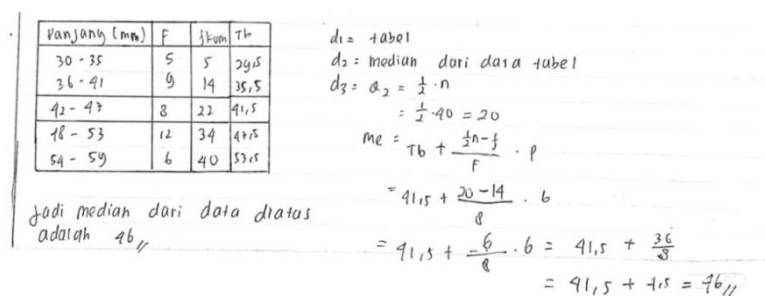 Panjang (mm) F fkum Tb
30 - 35 5 5 29,5
36 - 41 9 14 35,5
42 - 47 8 22 41,5
48 - 53 12 34 47,5
54 - 59 6 40 53,5
Jadi median dari data diatas
adalah 46//
d1 = tabel
d2 = median dari data tabel
d3 = Q2 = 1/2 . n
= 1/2 . 40 = 20
me = Tb + (1/2n - f)/F . P
= 41,5 + (20 - 14)/8 . 6
= 41,5 + 6/8 . 6 = 41,5 + 36/8
= 41,5 + 4,5 = 46//